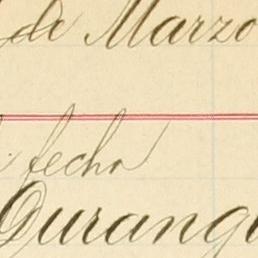 de Marzo
fecha
Durang